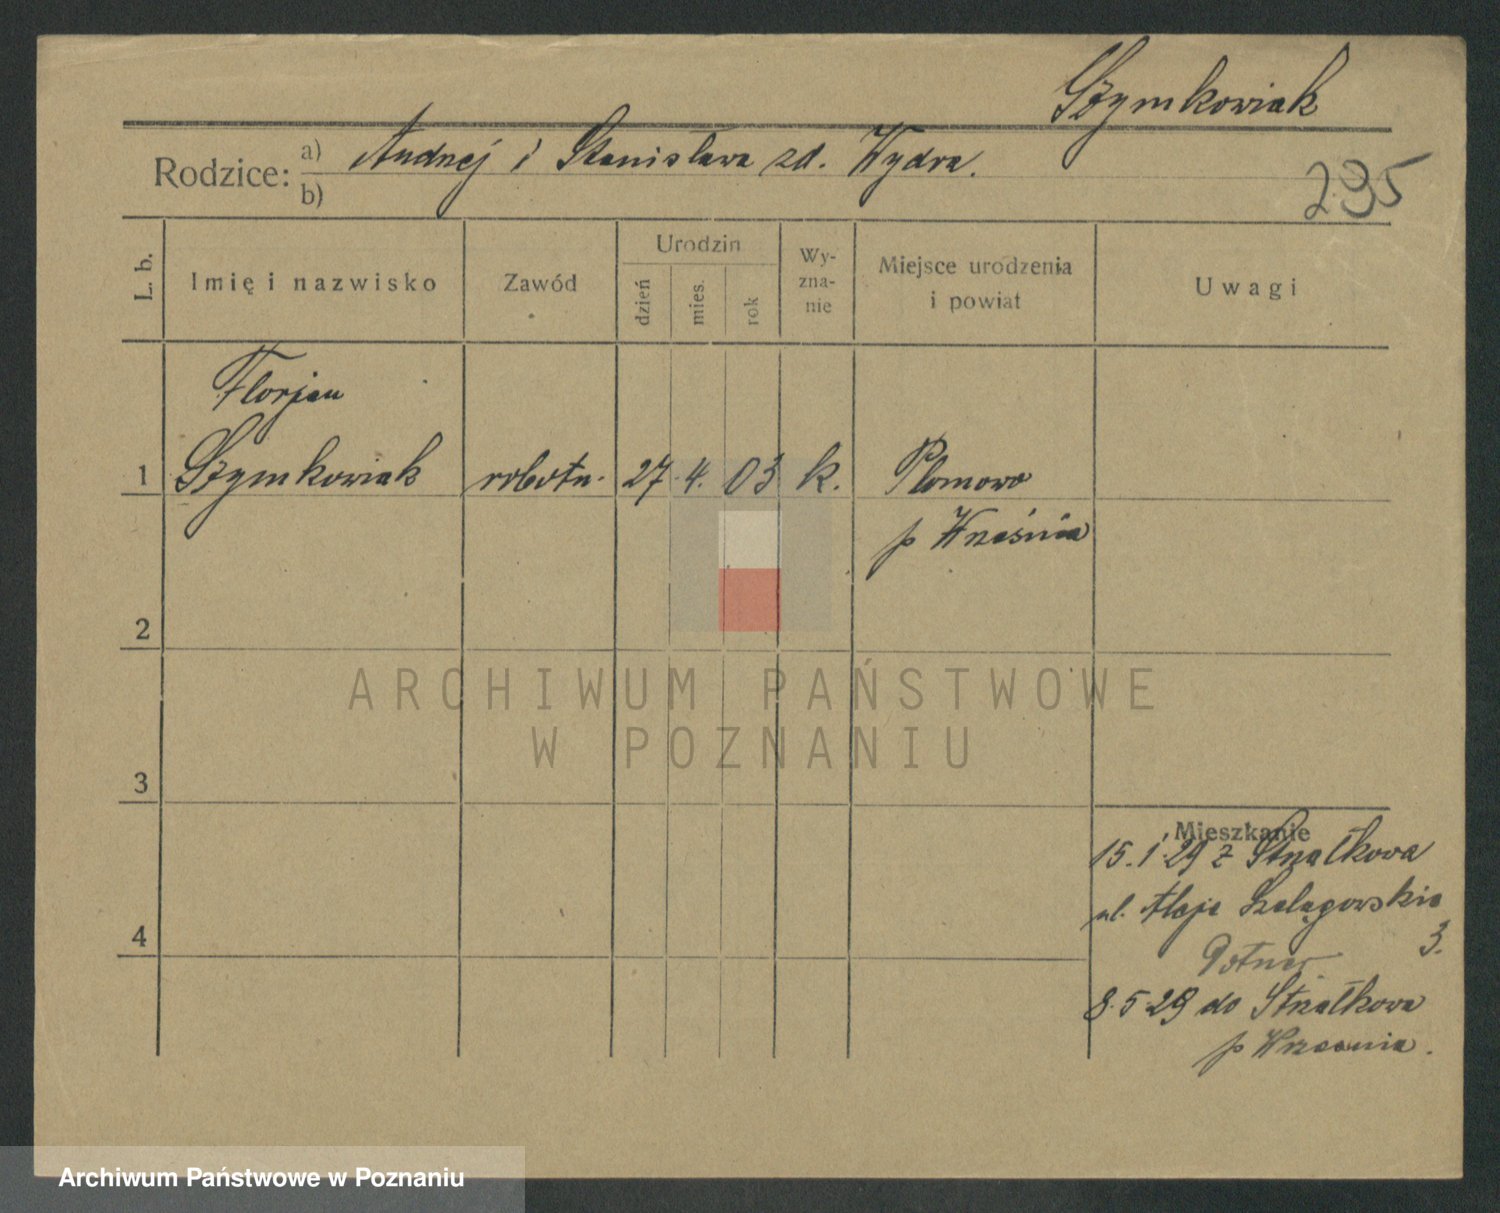 Szymkowiak
Rodzice: a) Andrzej i Stanisława zd. Wydra.
b)
295
L. b.
Imię i nazwisko
Zawód
Urodzin
dzień
mies.
rok
Wy-
zna-
nie
Miejsce urodzenia
i powiat
Uwagi
Florjan
1 Szymkowiak robotn. 27. 4. 03 k. Plomowo
p Września
2
ARCHIWUM PAŃSTWOWE
W POZNANIU
3
Mieszkanie
15. 1 29 z Strzałkowa
ul. Aleje Szelągowskie
4
3.
8. 5 29 do Strzałkowa
p Września.
Archiwum Państwowe w Poznaniu